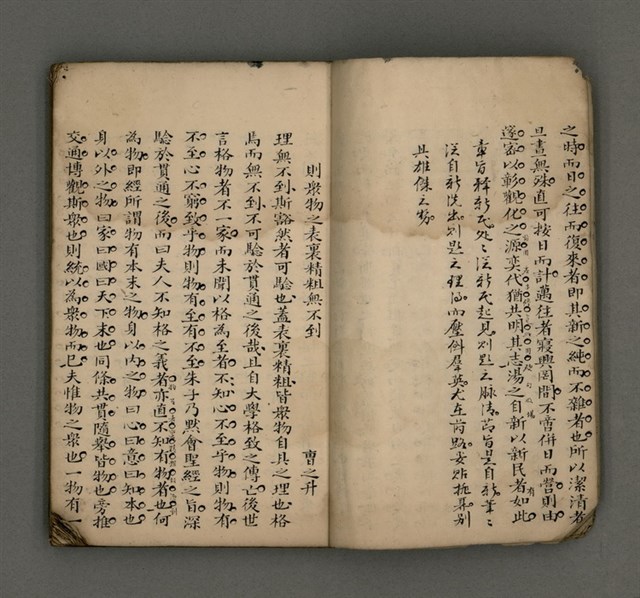 之時而日之往而復來者即其新之純而不雜者也所以潔清者
旦晝無殊直可按日而計邁往者寢興罔間不啻併日而營則由
遂密以彰觀化之源奕代猶共明其志湯之自新以新民者如此
章旨釋新民處處從新民起見
從自新洗出
其雄傑之勢
則衆物之表裏精粗無不到
曹之升
理無不到斯豁然者可驗也蓋表裏精粗皆衆物自具之理也格
焉而無不到不可驗於貫通之後哉且自大學格致之傳亡後世
言格物者不一家而未聞以格為至者不知心不至乎物則物有
不至心不窮致乎物則物有至有不至朱子乃默會聖經之旨深
驗於貫通之後而曰夫人不知格之義者亦直不知有物者也何
為物即經所謂物有本末之物身以內之物曰心曰意曰知本也
身以外之物曰家曰國曰天下末也同條共貫隨舉皆物也旁推
交通博觀斯衆也則統以為衆物而已夫惟物之衆也一物有一